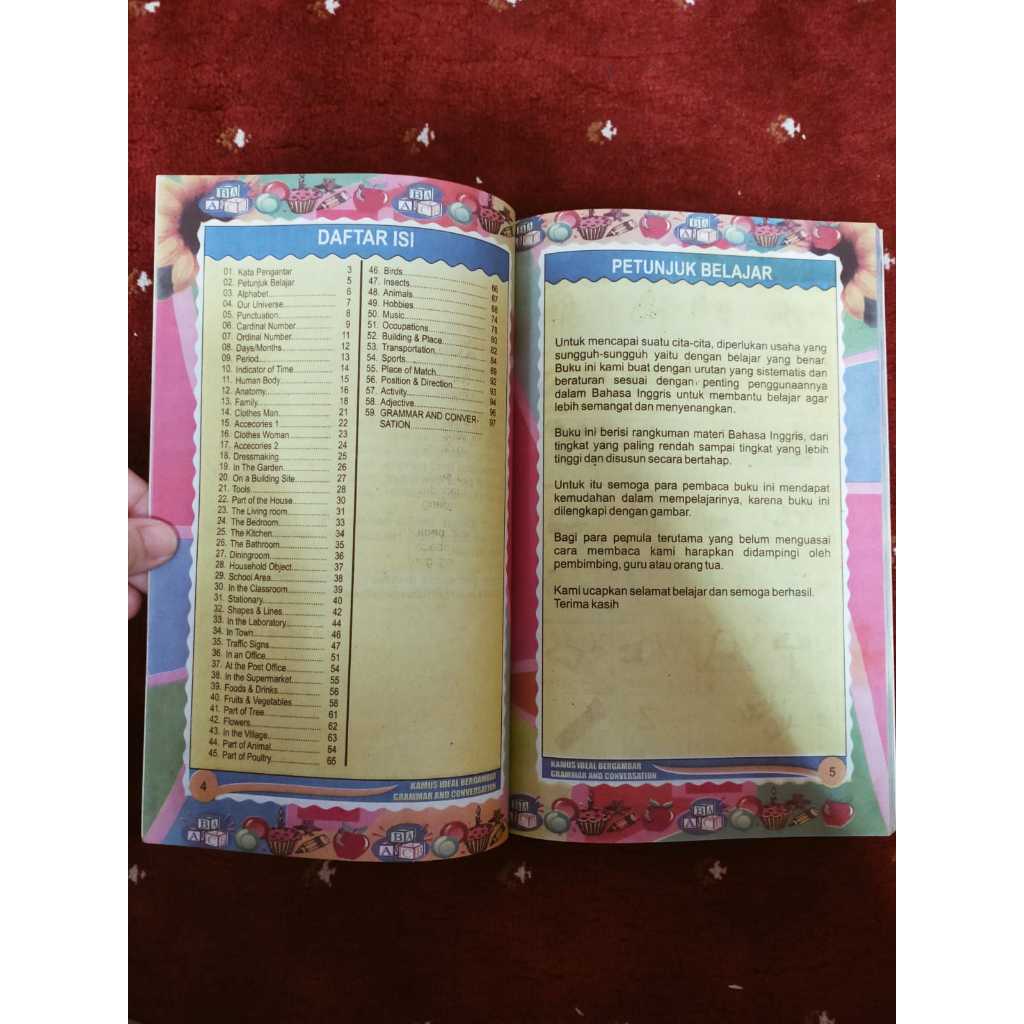 DAFTAR ISI
01. Kata Pengantar 3
02. Petunjuk Belajar 5
03. Alphabet 6
04. Our Universe 7
05. Punctuation 8
06. Cardinal Number 9
07. Ordinal Number 11
08. Days/Months 12
09. Period 13
10. Indicator of Time 14
11. Human Body 15
12. Anatomy 16
13. Family 18
14. Clothes Man 21
15. Accecories 1 22
16. Clothes Woman 23
17. Accecories 2 24
18. Dressmaking 25
19. In The Garden 26
20. On a Building Site 27
21. Tools 28
22. Part of the House 30
23. The Living room 31
24. The Bedroom 33
25. The Kitchen 34
26. The Bathroom 35
27. Diningroom 36
28. Household Object 37
29. School Area 38
30. In the Classroom 39
31. Stationary 40
32. Shapes & Lines 42
33. In the Laboratory 44
34. In Town 46
35. Traffic Signs 47
36. In an Office 51
37. At the Post Office 54
38. In the Supermarket 55
39. Foods & Drinks 56
40. Fruits & Vegetables 58
41. Part of Tree 61
42. Flowers 62
43. In the Village 63
44. Part of Animal 64
45. Part of Poultry 65
46. Birds 66
47. Insects 67
48. Animals 68
49. Hobbies 74
50. Music 78
51. Occupations 80
52. Building & Place 82
53. Transportation 84
54. Sports 89
55. Place of Match 92
56. Position & Direction 93
57. Activity 94
58. Adjective 96
59. GRAMMAR AND CONVER-
SATION 97
4
KAMUS IDEAL BERGAMBAR
GRAMMAR AND CONVERSATION
PETUNJUK BELAJAR
Untuk mencapai suatu cita-cita, diperlukan usaha yang
sungguh-sungguh yaitu dengan belajar yang benar.
Buku ini kami buat dengan urutan yang sistematis dan
beraturan sesuai dengan penting penggunaannya
dalam Bahasa Inggris untuk membantu belajar agar
lebih semangat dan menyenangkan.
Buku ini berisi rangkuman materi Bahasa Inggris, dari
tingkat yang paling rendah sampai tingkat yang lebih
tinggi dan disusun secara bertahap.
Untuk itu semoga para pembaca buku ini mendapat
kemudahan dalam mempelajarinya, karena buku ini
dilengkapi dengan gambar.
Bagi para pemula terutama yang belum menguasai
cara membaca kami harapkan didampingi oleh
pembimbing, guru atau orang tua.
Kami ucapkan selamat belajar dan semoga berhasil.
Terima kasih
KAMUS IDEAL BERGAMBAR
GRAMMAR AND CONVERSATION
5